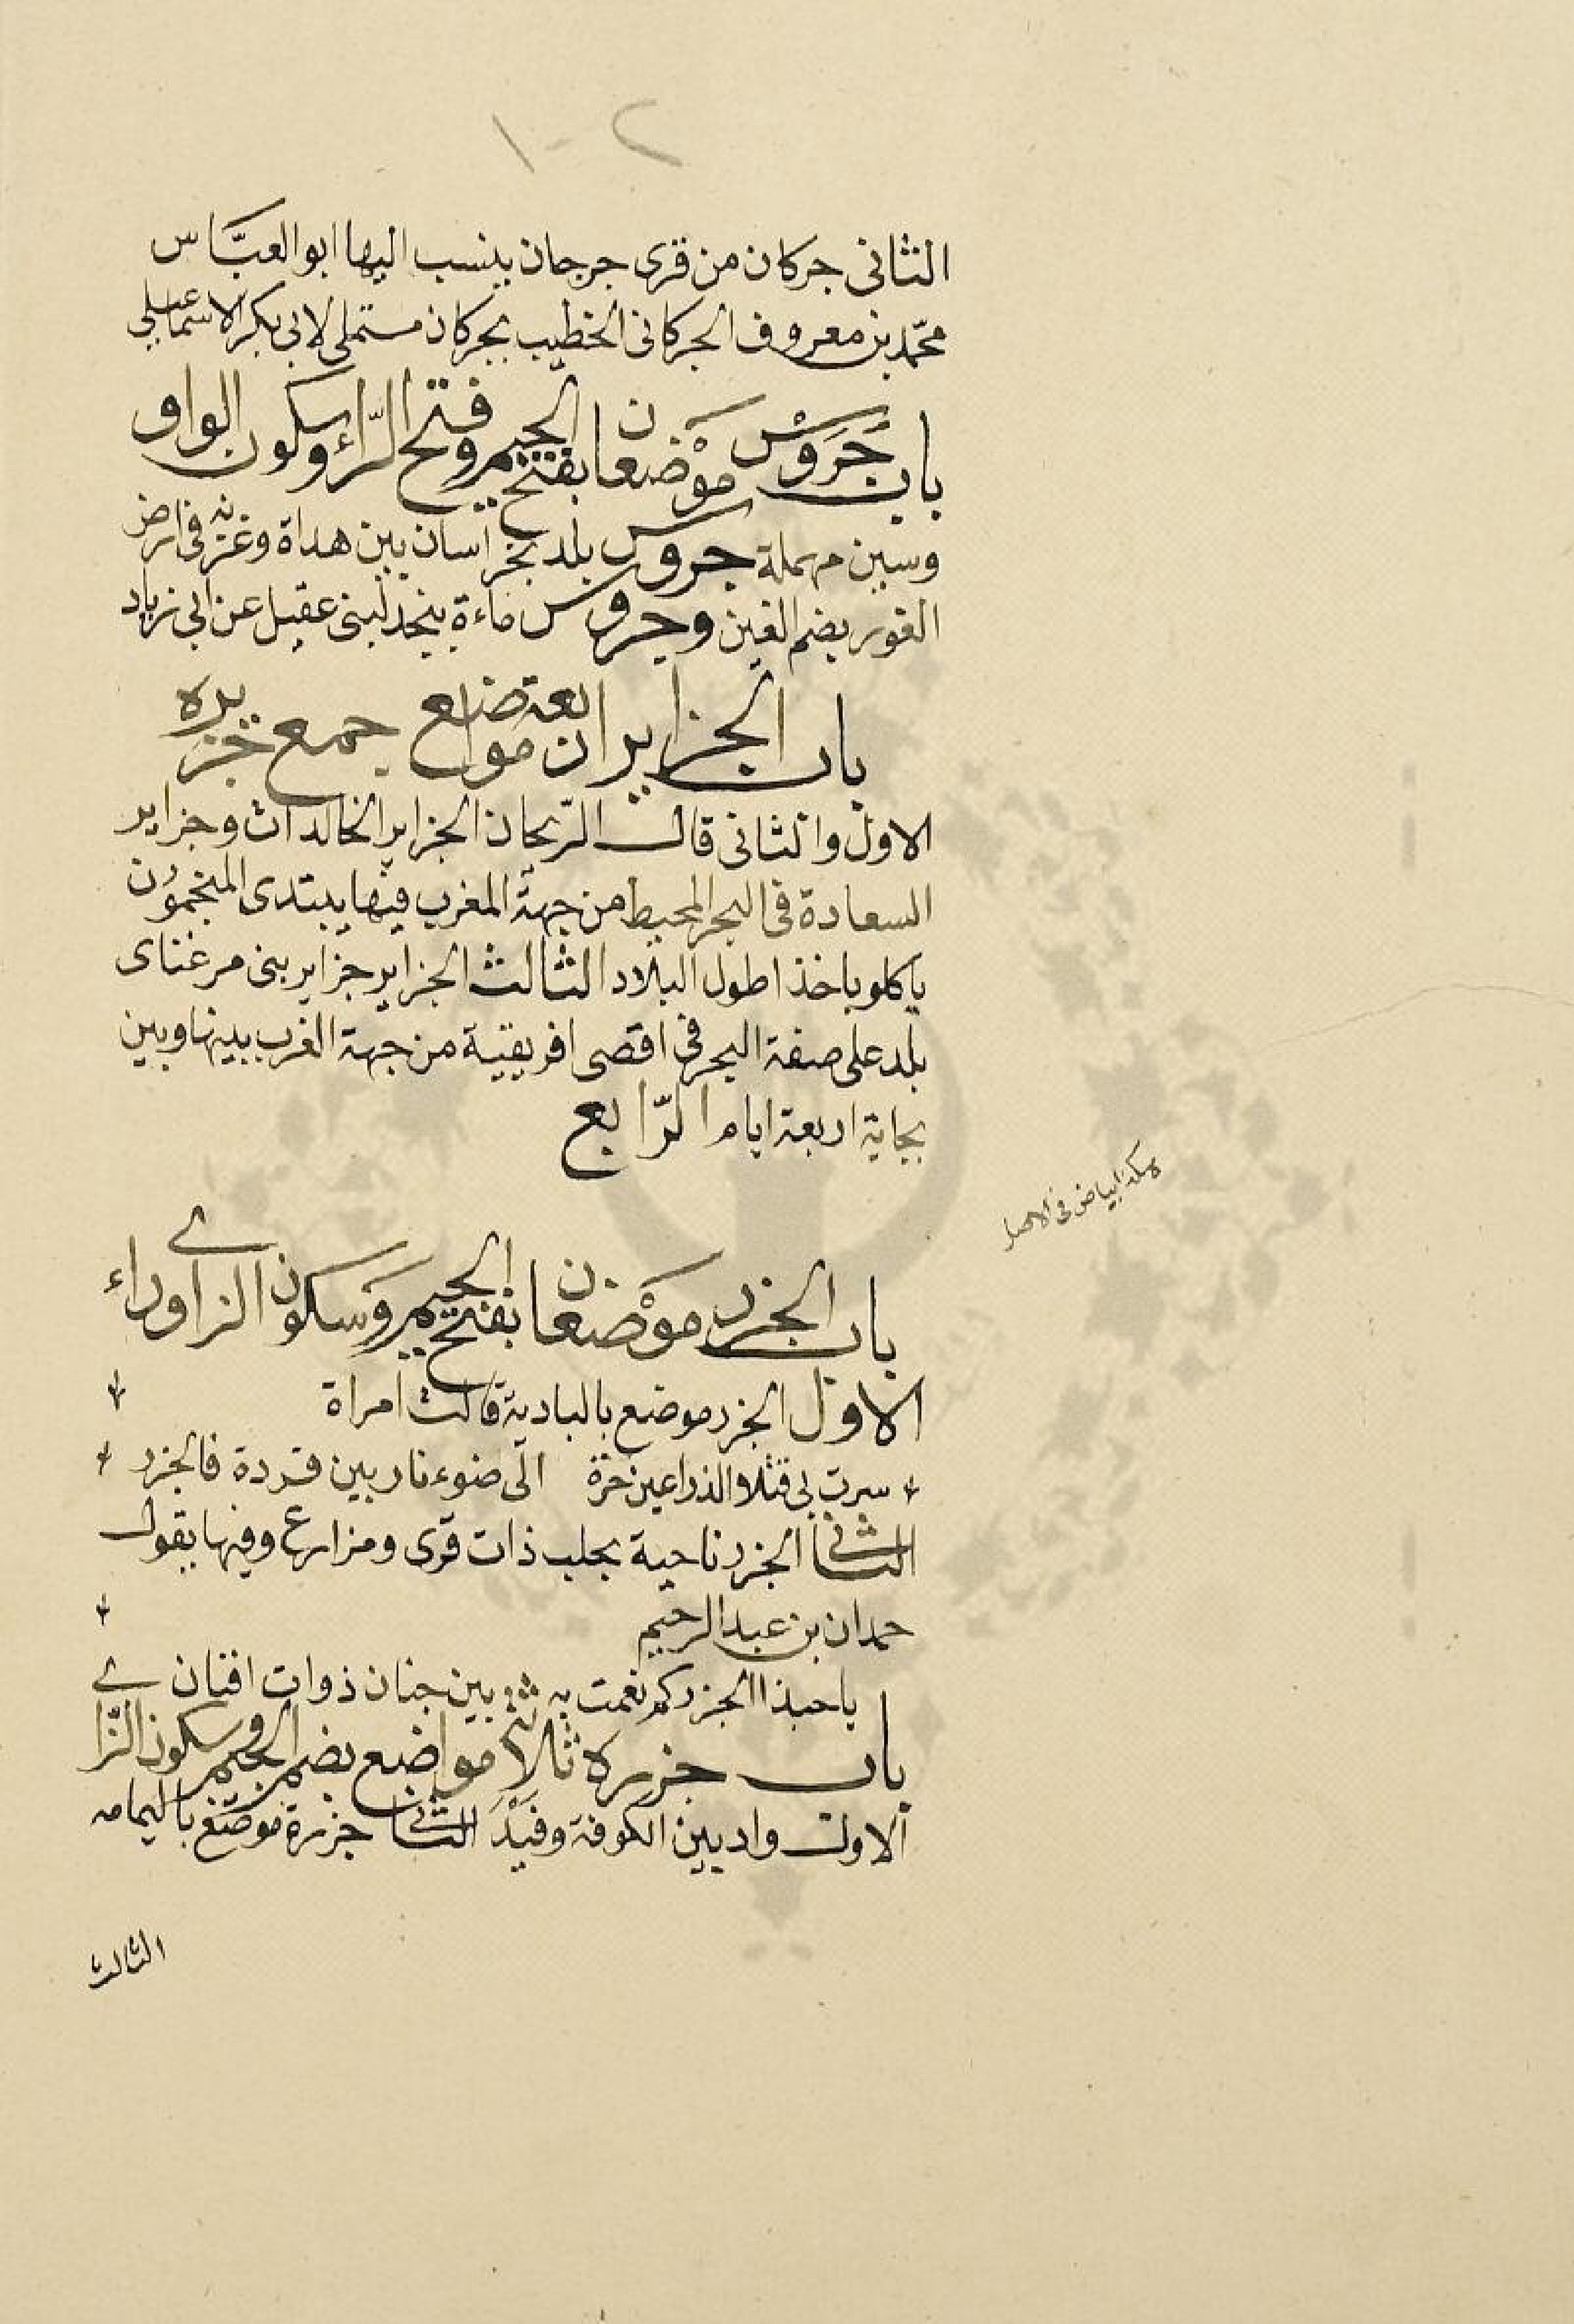 ١٠٢
الثانى جركان من قرى جرجان ينسب اليها ابو العبَّاس
محمّد بن معروف الجركانى الخطيب بجركان مستملى لابى بكر الاسماعيلي
باب جَرَوْس موْضعان بفتح الجيم وفتح الرّاء وسكون الواو
وسين مهملة جروس بلد بخراسان بين هداة وغزنه فى ارض
الغور بضم الغين وجروس ماءة بنجد لبنى عقيل عن ابى زياد
باب الجزاير اربعة مواضع جمع جزيره
الاول والثانى قال الرّيحان الجزاير الخالدات وجزاير
السعادة فى البحر المحيط من جهة المغرب فيها يبتدى المنجمون
ياكلو باخذ اطول البلاد الثالث الجزاير جزاير بنى مرغناى
بلد على صفة البحر فى اقصى افريقية من جهة الغرب بينها وبين
بجاية اربعة ايام الرّابع
هكذا بياض فى الاصل
باب الجزر موْضعان بفتح الجيم وسكون الزاى وراء
الاول الجزر موضع بالبادية قالت امراة
سرت بي قتلاء الذراعين حرة الى ضوء نار بين قردة فالجزر
الثانى الجزر ناحية بحلب ذات قرى ومزارع وفيها يقول
حمدان بن عبد الرحيم
يا حبذا الجزر كم نعمت به بين جنان ذوات افنان
باب جزره ثلاثة مواضع بضم الجيم وسكون الزّاى
الاول واد بين الكوفة وفَيْدَ الثانى جزرة موضع باليمامه
الثالث